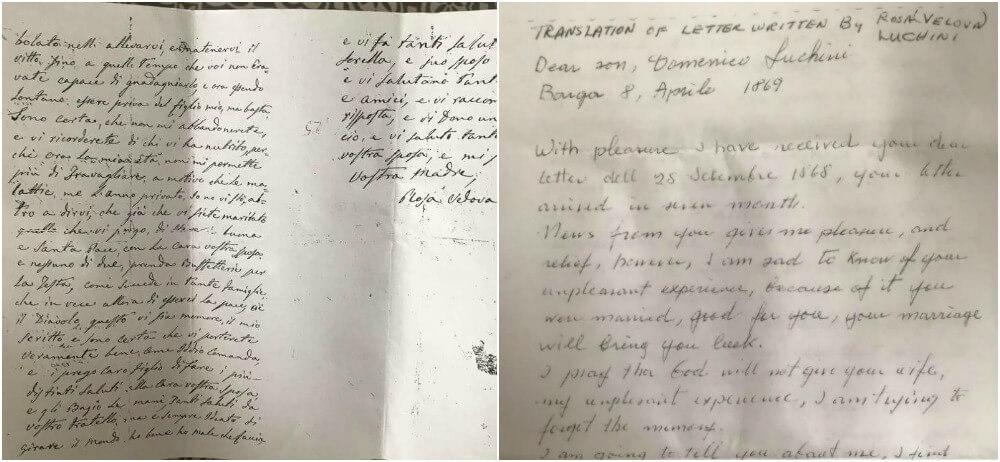 bolato: netti allevarvi, e matenervi il
vitto, fino, a quello tempo che voi non era-
vate capace di guadagniarlo e ora esendo
lontano, essere priva del figlio mio, ma basta,
Sono certa, che non mi abbandonerete,
e vi ricorderete di chi vi ha nutrito, per-
chè ora la mia età, non mi permette
più di Travagliare, a motivo che le ma-
lattie, me l'anno privato,
tro a dirvi, che già che vi siete maritato
quello che vi prego, di buona
e Santa Pace, con la Cara vostra sposa
e nessuno di due, prenda per
la Testa, come Sucede in tante famiglie,
che in vece allora di esserci la pace, c'è
il Diavolo, questo vi sia memore, il mio
scritto, e sono certa che vi porterete
veramente bene, come Iddio Comanda,
e vi prego caro figlio di fare i più-
distinti Saluti alla Cara vostra Sposa,
e gli Bagio le mani, Tanti Saluti da
vostro fratello, ma è sempre
girare il mondo ho bene ho male che faccia
e vi fa tanti salut
Sorella, e suo sposo
e vi Salutano Tant
e amici, e vi raccon
risposta, e vi Dono un
cio, e vi saluto tant
vostra sposa, e mi
vostra Madre,
Rosa Vedova
TRANSLATION OF LETTER WRITTEN BY ROSA (VEDOVA)
LUCHINI
Dear son, Domenico Luchini
Barga 8, Aprile 1869
With pleasure I have received your dear
letter dell 28 Setembre 1868, your letter
arrived in seven month.
News from you gives me pleasure, and
relief, however, I am sad to know of your
unpleasant experience, because of it you
were married, good for you, your marriage
will bring you luck.
I pray that God will not give your wife,
my unplesant experience, I am trying to
forget the memory.
I am going to tell you about me, I find